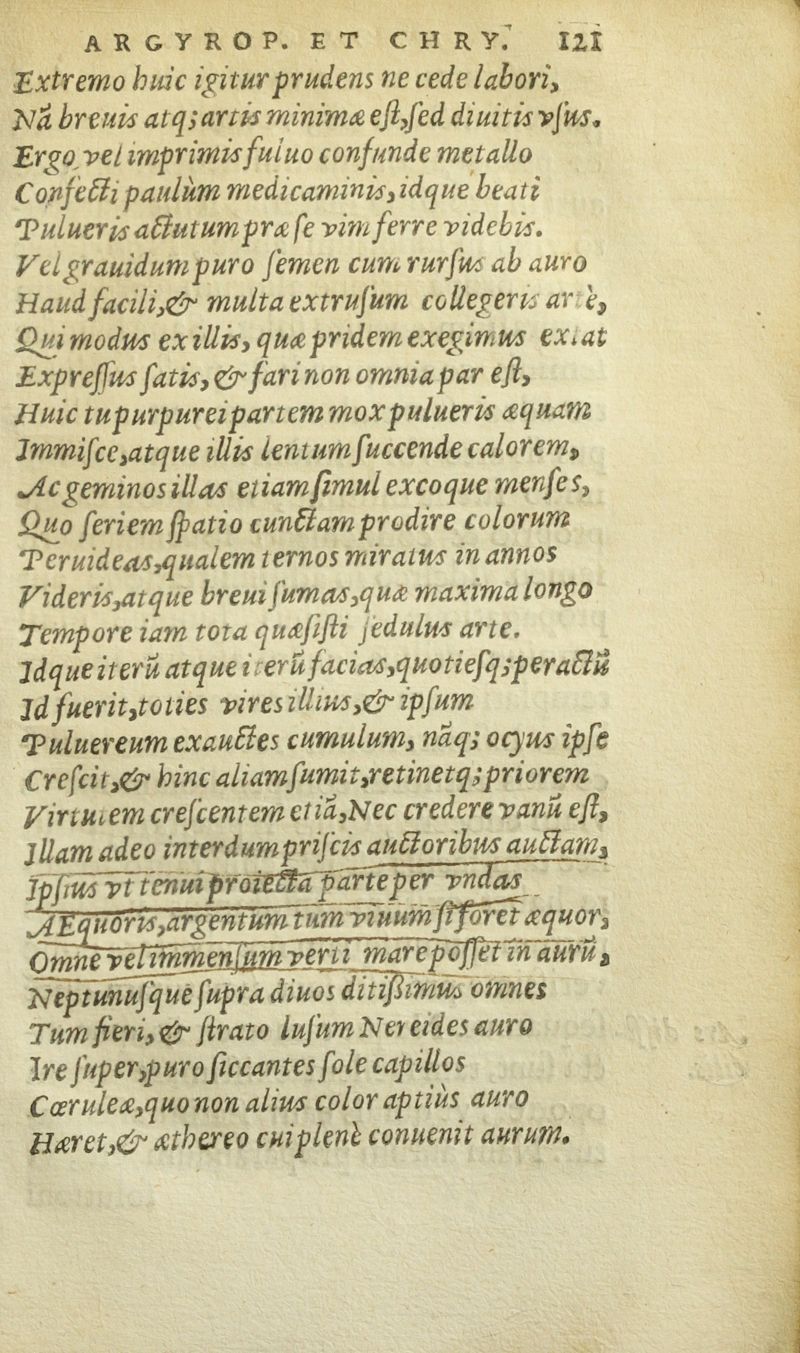 ARGYROP. ET CHRY. 121
Extremo huic igitur prudens ne cede labori,
Nã breuis atq; artis minimæ est, sed diuitis vsus.
Ergo vel imprimis fuluo confunde metallo
Confecti paulùm medicaminis, idque beati
Pulueris actutum præ se vim ferre videbis.
Vel grauidum puro semen cum rursus ab auro
Haud facili, & multa extrusum collegeris arte,
Qui modus ex illis, quæ pridem exegimus extat
Expressus satis, & fari non omnia par est,
Huic tu purpurei partem mox pulueris æquam
Immisce, atque illis lentum succende calorem,
Ac geminos illas etiam simul excoque menses,
Quo seriem spatio cunctam prodire colorum
Peruideas, qualem ternos miratus in annos
Videris, atque breui sumas, quæ maxima longo
Tempore iam tota quæsisti sedulus arte.
Idque iterũ atque iterũ facias, quotiesq; peractũ
Id fuerit, toties vires illius, & ipsum
Puluereum exauctes cumulum, nãq; ocyus ipse
Crescit, & hinc aliam sumit, retinetq; priorem
Virtutem crescentem etiã, Nec credere vanũ est,
Illam adeo interdum priscis auctoribus auctam,
Ipsius vt tenui proiecta parte per vndas
AEquoris, argentum tum viuum si foret æquor,
Omne vel immensum verti mare posset in aurũ,
Neptunusque supra diuos ditissimus omnes
Tum fieri, & strato lusum Nereides auro
Ire super, puro siccantes sole capillos
Cœruleæ, quo non alius color aptiùs auro
Hæret, & æthereo cui plenè conuenit aurum.